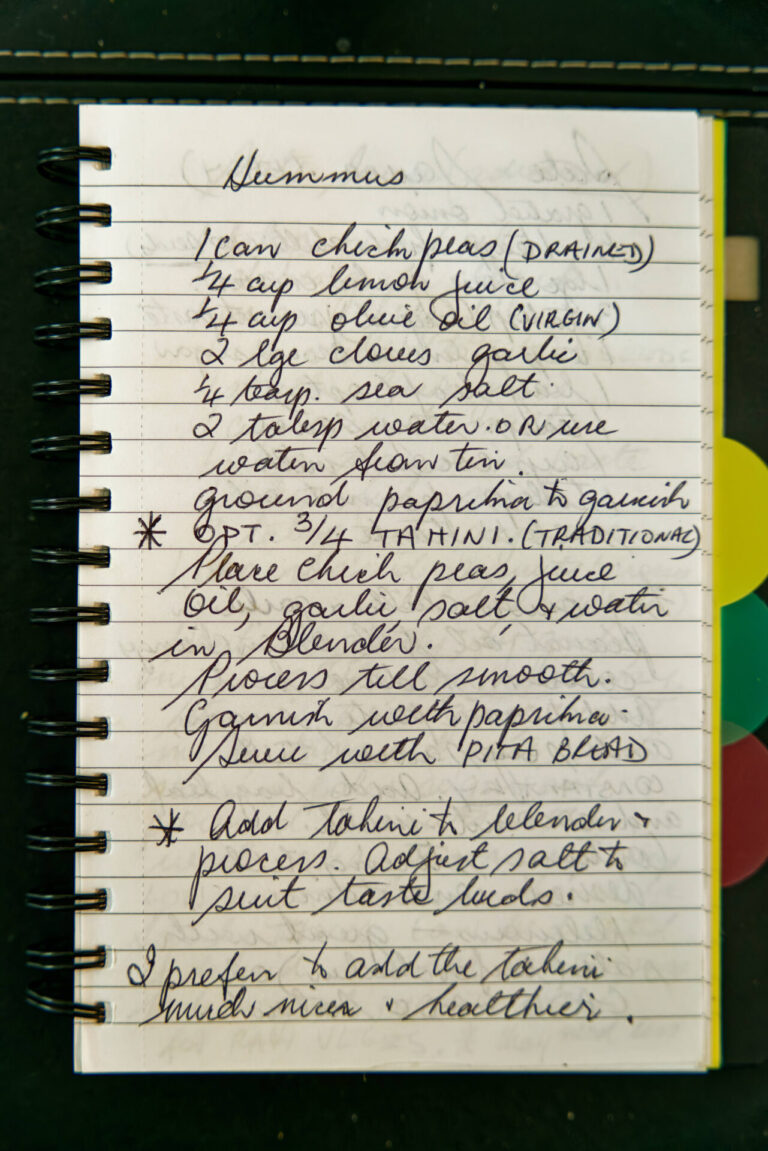 Hummus
1 can chick peas (DRAINED)
1/4 cup lemon juice
1/4 cup olive oil (VIRGIN)
2 lge cloves garlic
1/4 teasp. sea salt.
2 tablsp water. OR use
water from tin.
ground paprika to garnish
* OPT. 3/4 TAHINI. (TRADITIONAL)
Place chick peas, juice
oil, garlic, salt, & water
in Blender.
Process till smooth.
Garnish with paprika.
Serve with PITA BREAD
* Add tahini to blender &
process. Adjust salt to
suit taste buds.
I prefer to add the tahini
much nicer & healthier.